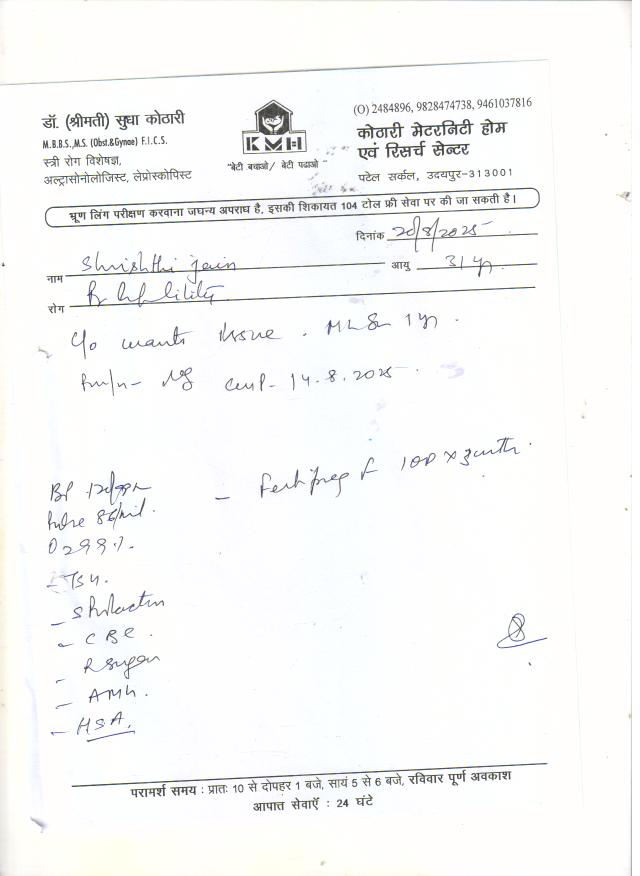 डॉ. (श्रीमती) सुधा कोठारी
M.B.B.S.,M.S. (Obst.&Gynae) F.I.C.S.
स्त्री रोग विशेषज्ञ,
अल्ट्रासोनोलॉजिस्ट, लेप्रोस्कोपिस्ट
KMH
"बेटी बचाओ/ बेटी पढाओ"
(O) 2484896, 9828474738, 9461037816
कोठारी मेटरनिटी होम
एवं रिसर्च सेन्टर
पटेल सर्कल, उदयपुर-313001
भ्रूण लिंग परीक्षण करवाना जघन्य अपराध है, इसकी शिकायत 104 टोल फ्री सेवा पर की जा सकती है।
दिनांक 20/8/2025
नाम Shrishthi jain आयु 31 yr
रोग
c/o wants issue. MLS 1 yr.
14.8.2025
BP
Pulse 86/mit.
O2 99%.
- TSH.
- S Prolactin
- CBC.
- R Sugar
- AMH.
- HSA.
परामर्श समय : प्रातः 10 से दोपहर 1 बजे, सायं 5 से 6 बजे, रविवार पूर्ण अवकाश
आपात सेवाएँ : 24 घंटे